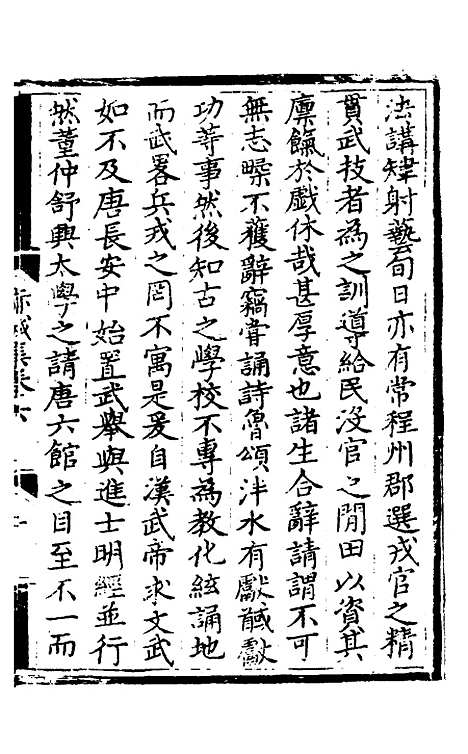 法講肄射藝旬日亦有常程州郡選戎官之精
貫武技者為之訓導給民沒官之閒田以資其
廪餼於戲休哉甚厚意也諸生合辭請謂不可
無志㬥不獲辭竊甞誦詩魯頌泮水有獻馘獻
功䓁事然後知古之學校不專為教化絃誦地
而武畧兵戎之罔不寓是爰自漢武帝求文武
如不及唐長安中始置武舉與進士明經並行
然董仲舒興太學之請唐六館之目至不一而
赤城集卷六